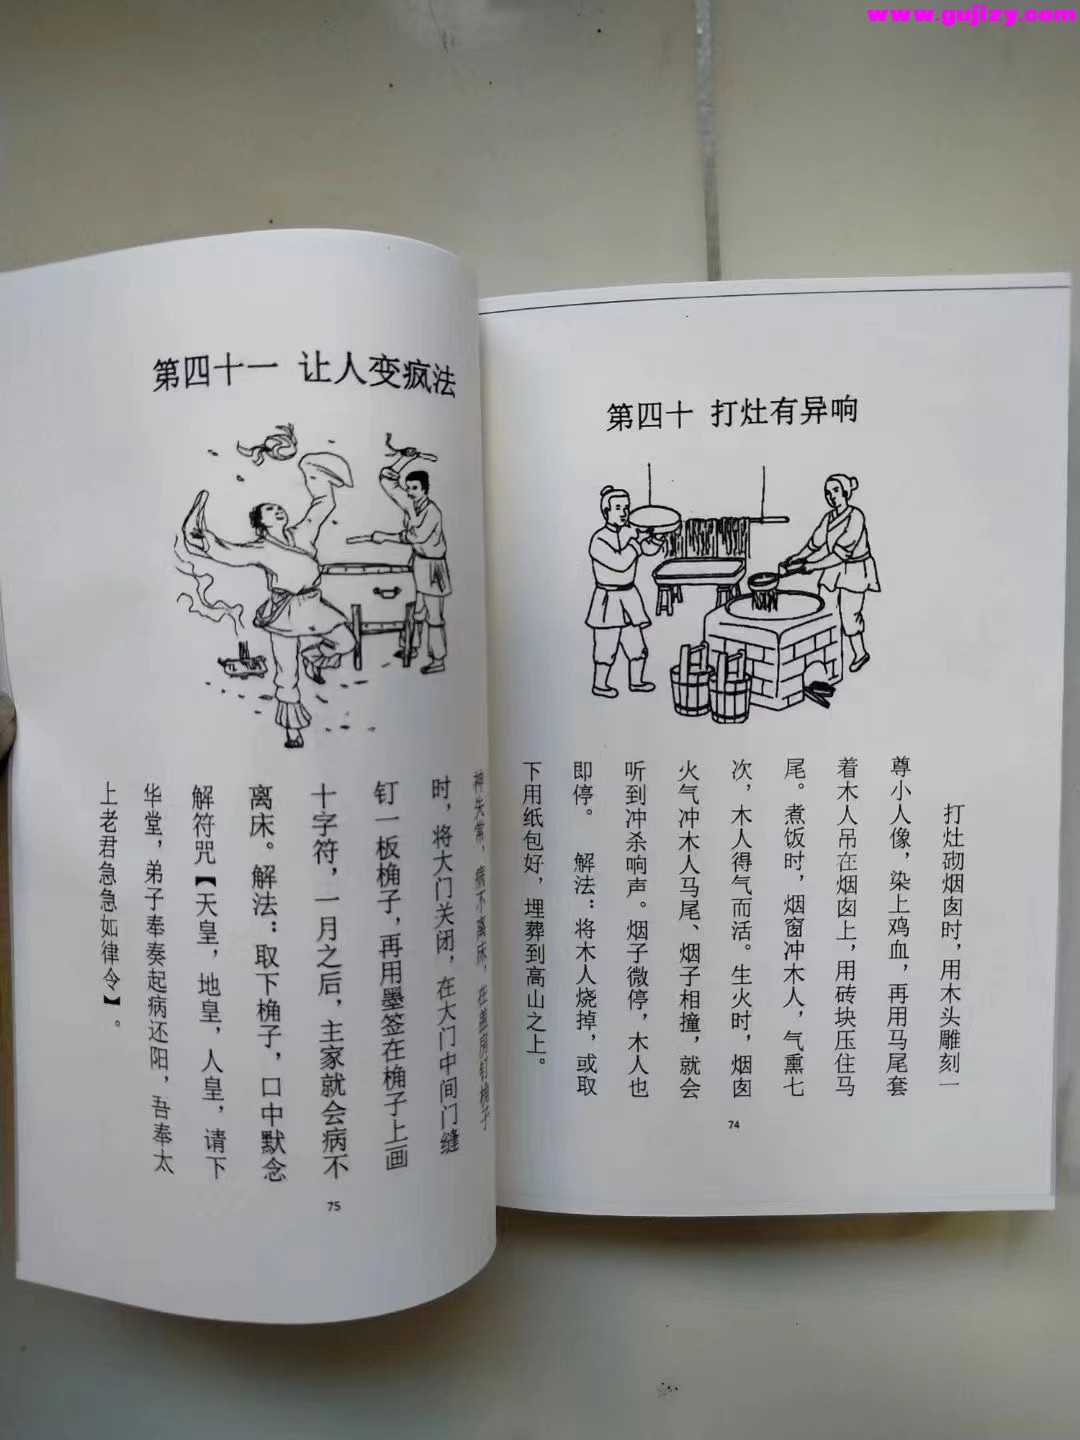 www.gujizy.com
第四十 打灶有异响
打灶砌烟囱时，用木头雕刻一
尊小人像，染上鸡血，再用马尾套
着木人吊在烟囱上，用砖块压住马
尾。煮饭时，烟窗冲木人，气熏七
次，木人得气而活。生火时，烟囱
火气冲木人马尾、烟子相撞，就会
听到冲杀响声。烟子微停，木人也
即停。 解法：将木人烧掉，或取
下用纸包好，埋葬到高山之上。
74
第四十一 让人变疯法
神失常，病不离床，在善房钉桷子
时，将大门关闭，在大门中间门缝
钉一板桷子，再用墨签在桷子上画
十字符，一月之后，主家就会病不
离床。解法：取下桷子，口中默念
解符咒【天皇，地皇，人皇，请下
华堂，弟子奉奏起病还阳，吾奉太
上老君急急如律令】。
75